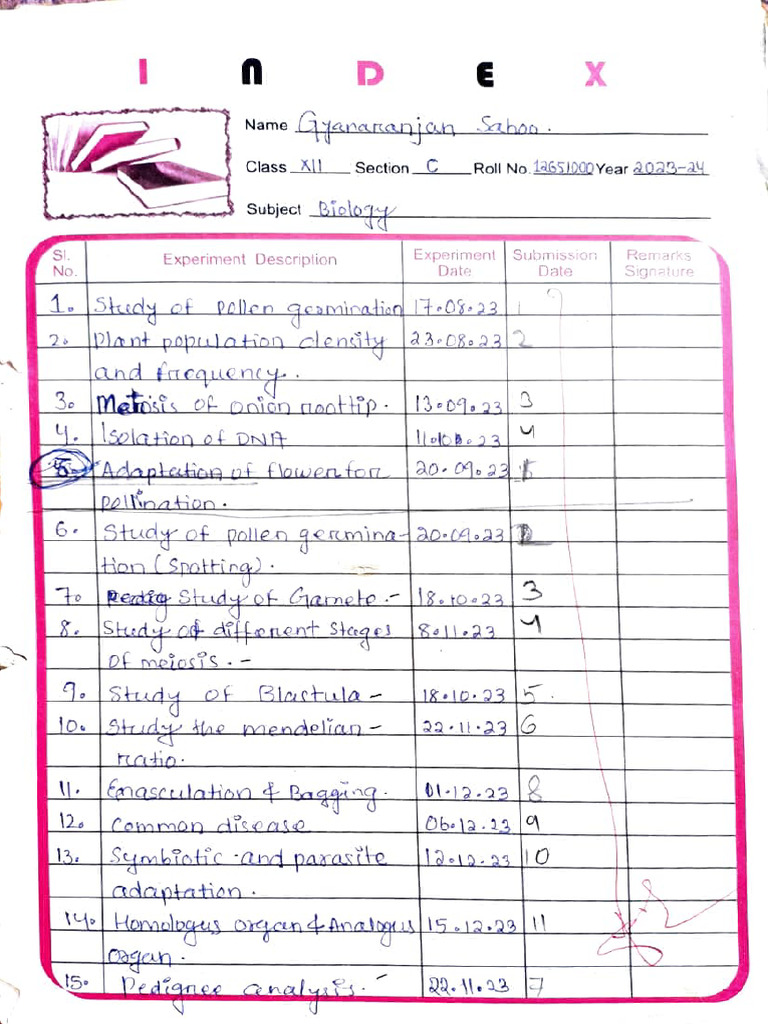 INDEX
Name Gyanaranjan Sahoo.
Class XII Section C Roll No. 12651000 Year 2023-24
Subject Biology
Sl. No. Experiment Description Experiment Date Submission Date Remarks Signature
1. Study of pollen germination 17.08.23 1
2. Plant population density 23.08.23 2
and frequency.
3. Metosis of onion roottip. 13.09.23 3
4. Isolation of DNA 11.10.23 4
5. Adaptation of flower for 20.09.23
pollination.
6. Study of pollen germina- 20.09.23
tion (Spotting).
7. Study of Gamete.- 18.10.23 3
8. Study of different stages 8.11.23 4
of meiosis. -
9. Study of Blastula - 18.10.23 5.
10. Study the mendelian - 22.11.23 6
ratio.
11. Emasculation & Bagging. 01.12.23 8
12. Common disease 06.12.23 9
13. Symbiotic and parasite 12.12.23 10
adaptation.
14. Homologus organ & Analogus 15.12.23 11
organ.
15. Pedignee analysis. - 22.11.23 7